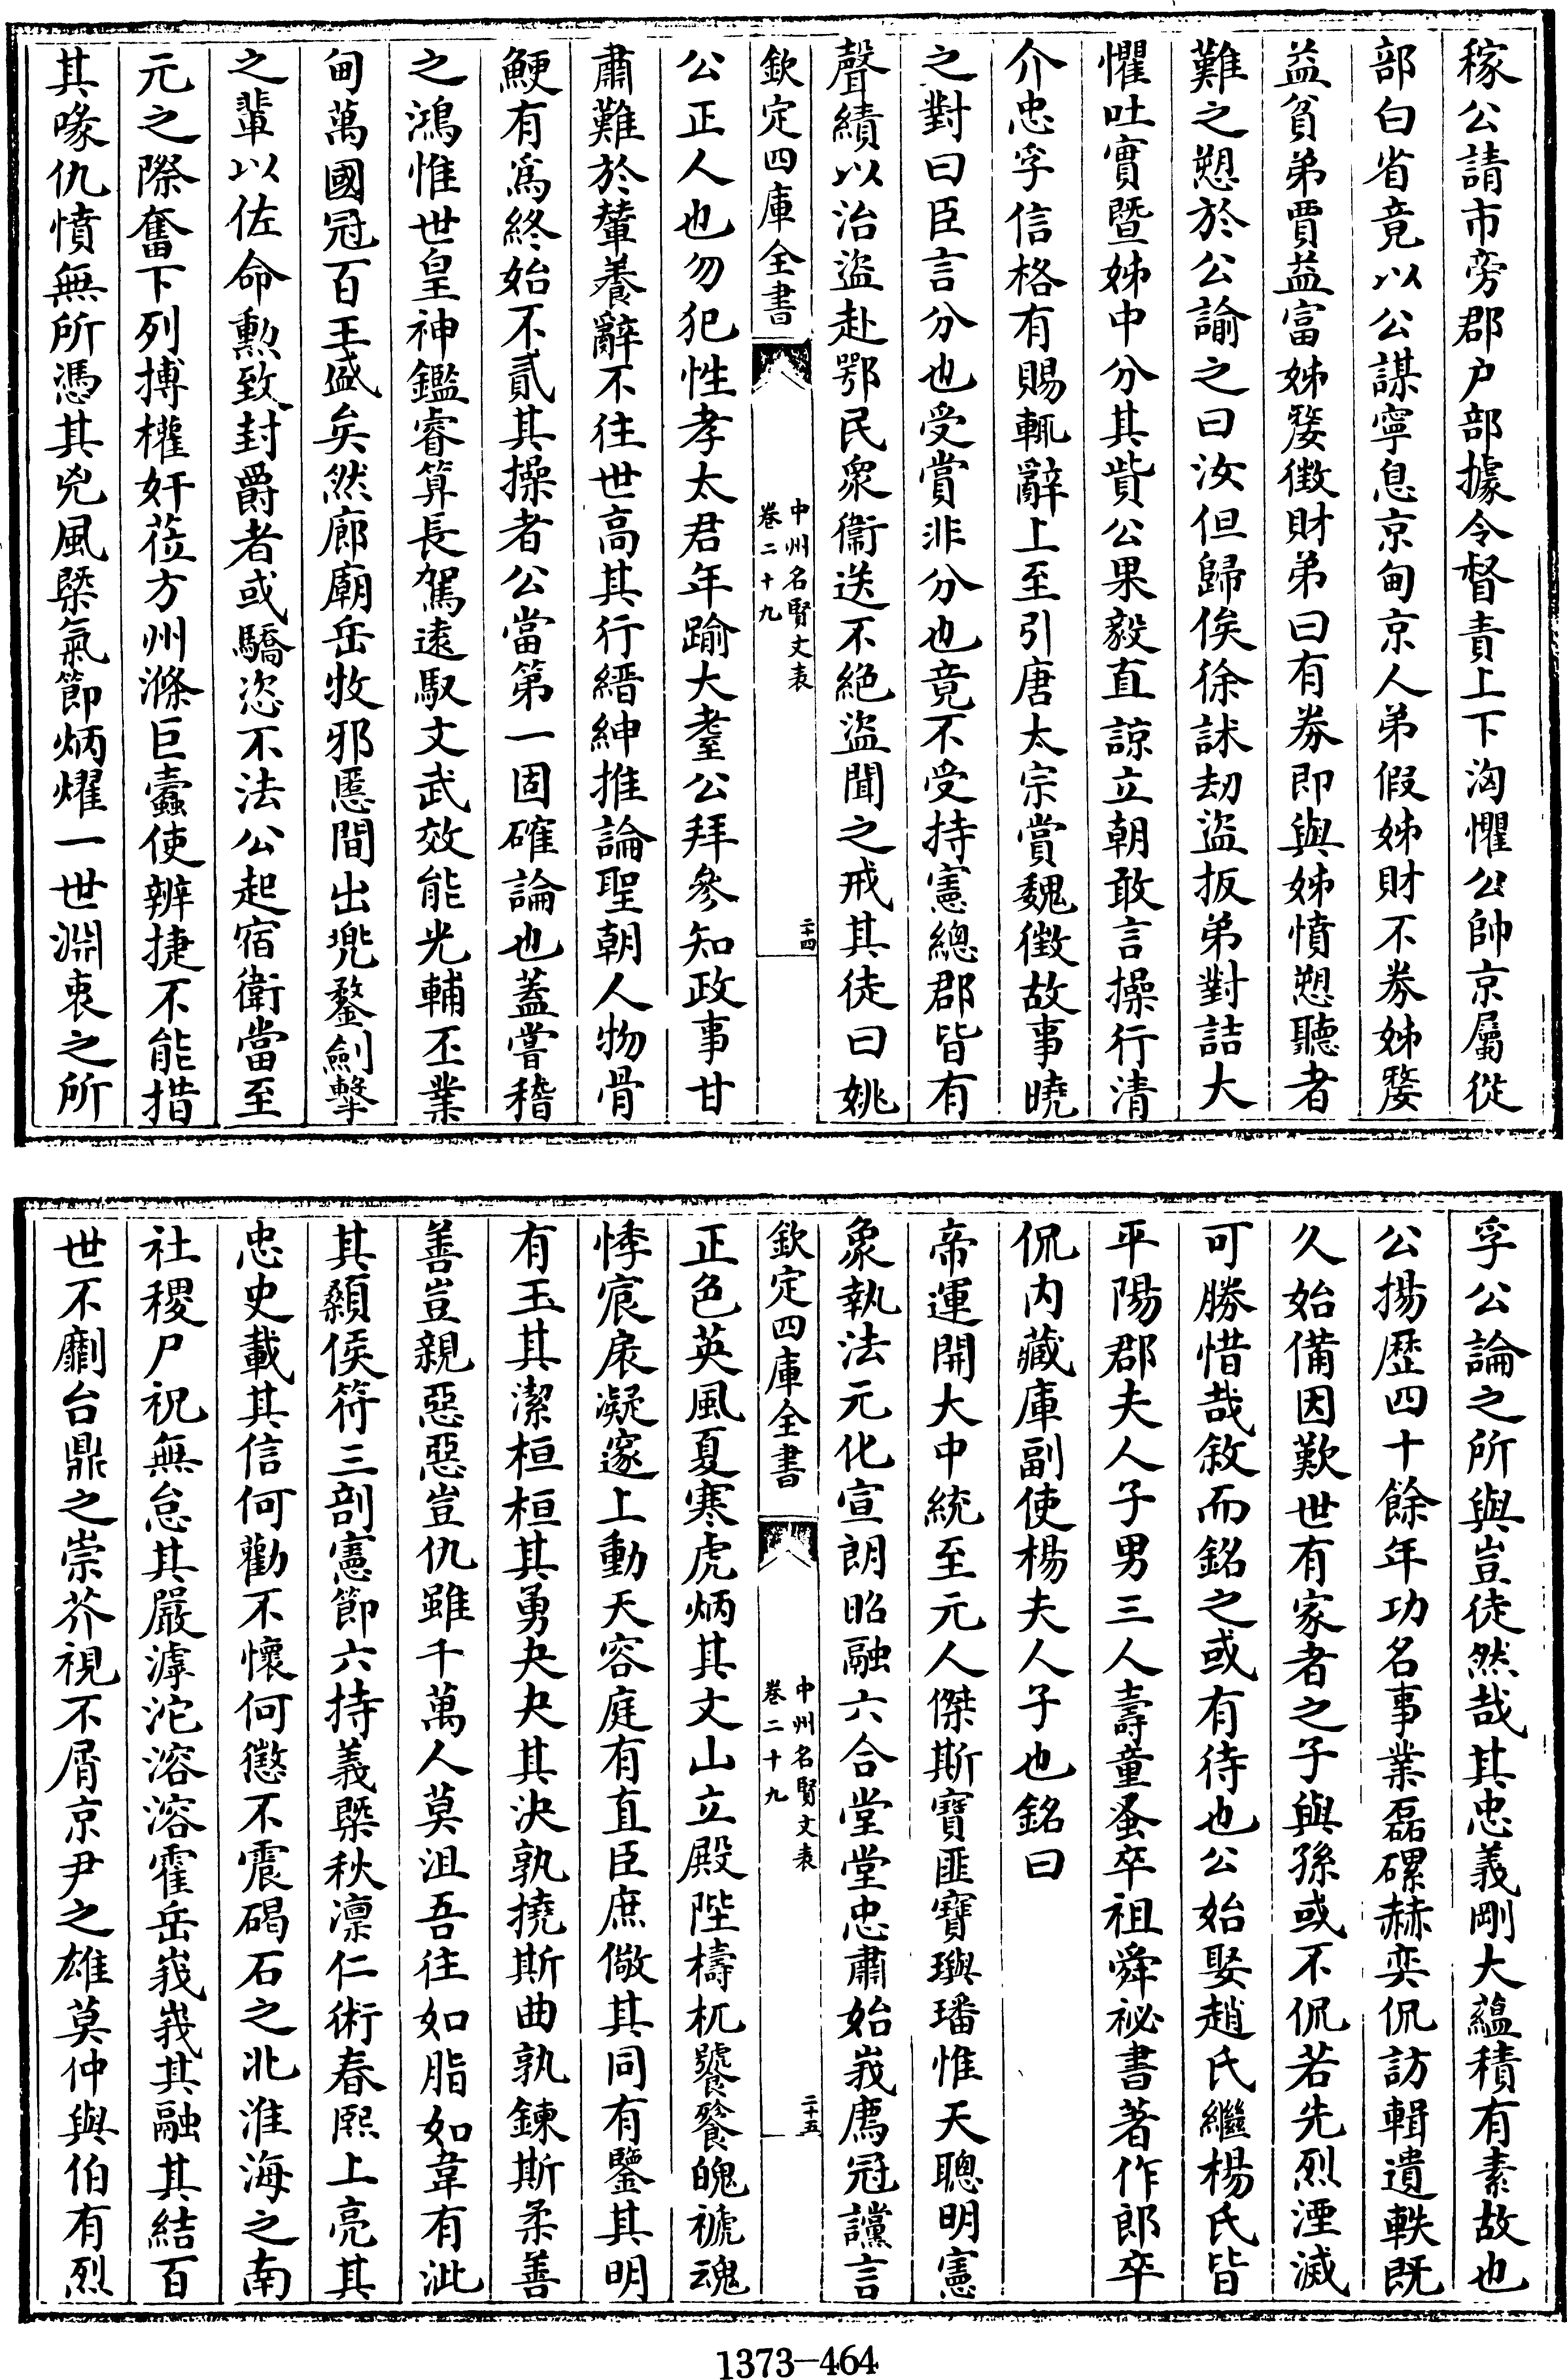 稼公請市旁郡户部據令督責上下洶懼公帥京屬從
部白省竟以公謀寧息京甸京人弟假姊財不券姊嫠
益貧弟賈益富姊嫠徴財弟曰有券即與姊憤愬聽者
難之愬於公諭之曰汝但歸俟徐訹劫盜扳弟對詰大
懼吐實暨姊中分其貲公果毅直諒立朝敢言操行清
介忠孚信格有賜輒辭上至引唐太宗賞魏徴故事曉
之對曰臣言分也受賞非分也竟不受持憲總郡皆有
聲績以治盜赴鄂民衆衞送不絶盜聞之戒其徒曰姚
欽定四庫全書
中州名賢文表
卷二十九
二十四
公正人也勿犯性孝太君年踰大耋公拜參知政事甘
肅難於輦養辭不往世高其行縉紳推論聖朝人物骨
鯁有爲終始不貳其操者公當第一固確論也蓋嘗稽
之鴻惟世皇神鑑睿算長駕遠馭文武效能光輔丕業
甸萬國冠百王盛矣然廊廟岳牧邪慝間出兠鍪劍擊
之輩以佐命勲致封爵者或驕恣不法公起宿衛當至
元之際奮下列搏權奸莅方州滌巨蠧使辨捷不能措
其喙仇憤無所憑其兇風槩氣節炳燿一世淵衷之所
孚公論之所與豈徒然哉其忠義剛大藴積有素故也
公揚歴四十餘年功名事業磊磥赫奕侃訪輯遺軼既
久始備因歎世有家者之子與孫或不侃若先烈湮滅
可勝惜哉敘而銘之或有待也公始娶趙氏繼楊氏皆
平陽郡夫人子男三人壽童蚤卒祖舜祕書著作郎卒
侃内藏庫副使楊夫人子也銘曰
帝運開大中統至元人傑斯寶匪寶璵璠惟天聰明憲
象執法元化宣朗昭融六合堂堂忠肅始峩廌冠讜言
欽定四庫全書
中州名賢文表
卷二十九
二十五
正色英風夏寒虎炳其文山立殿陛檮杌饕餮魄褫魂
悸宸扆凝邃上動天容庭有直臣庶儆其同有鑒其明
有玉其潔桓桓其勇夬夬其決孰撓斯曲孰鍊斯柔善
善豈親惡惡豈仇雖千萬人莫沮吾往如脂如韋有泚
其顙侯符三剖憲節六持義槩秋凛仁術春熙上亮其
忠史載其信何勸不懷何懲不震碣石之北淮海之南
社稷尸祝無怠其嚴滹沱溶溶霍岳峩峩其融其結百
世不劘台鼎之崇芥視不屑京尹之雄莫仲與伯有烈
1373—464